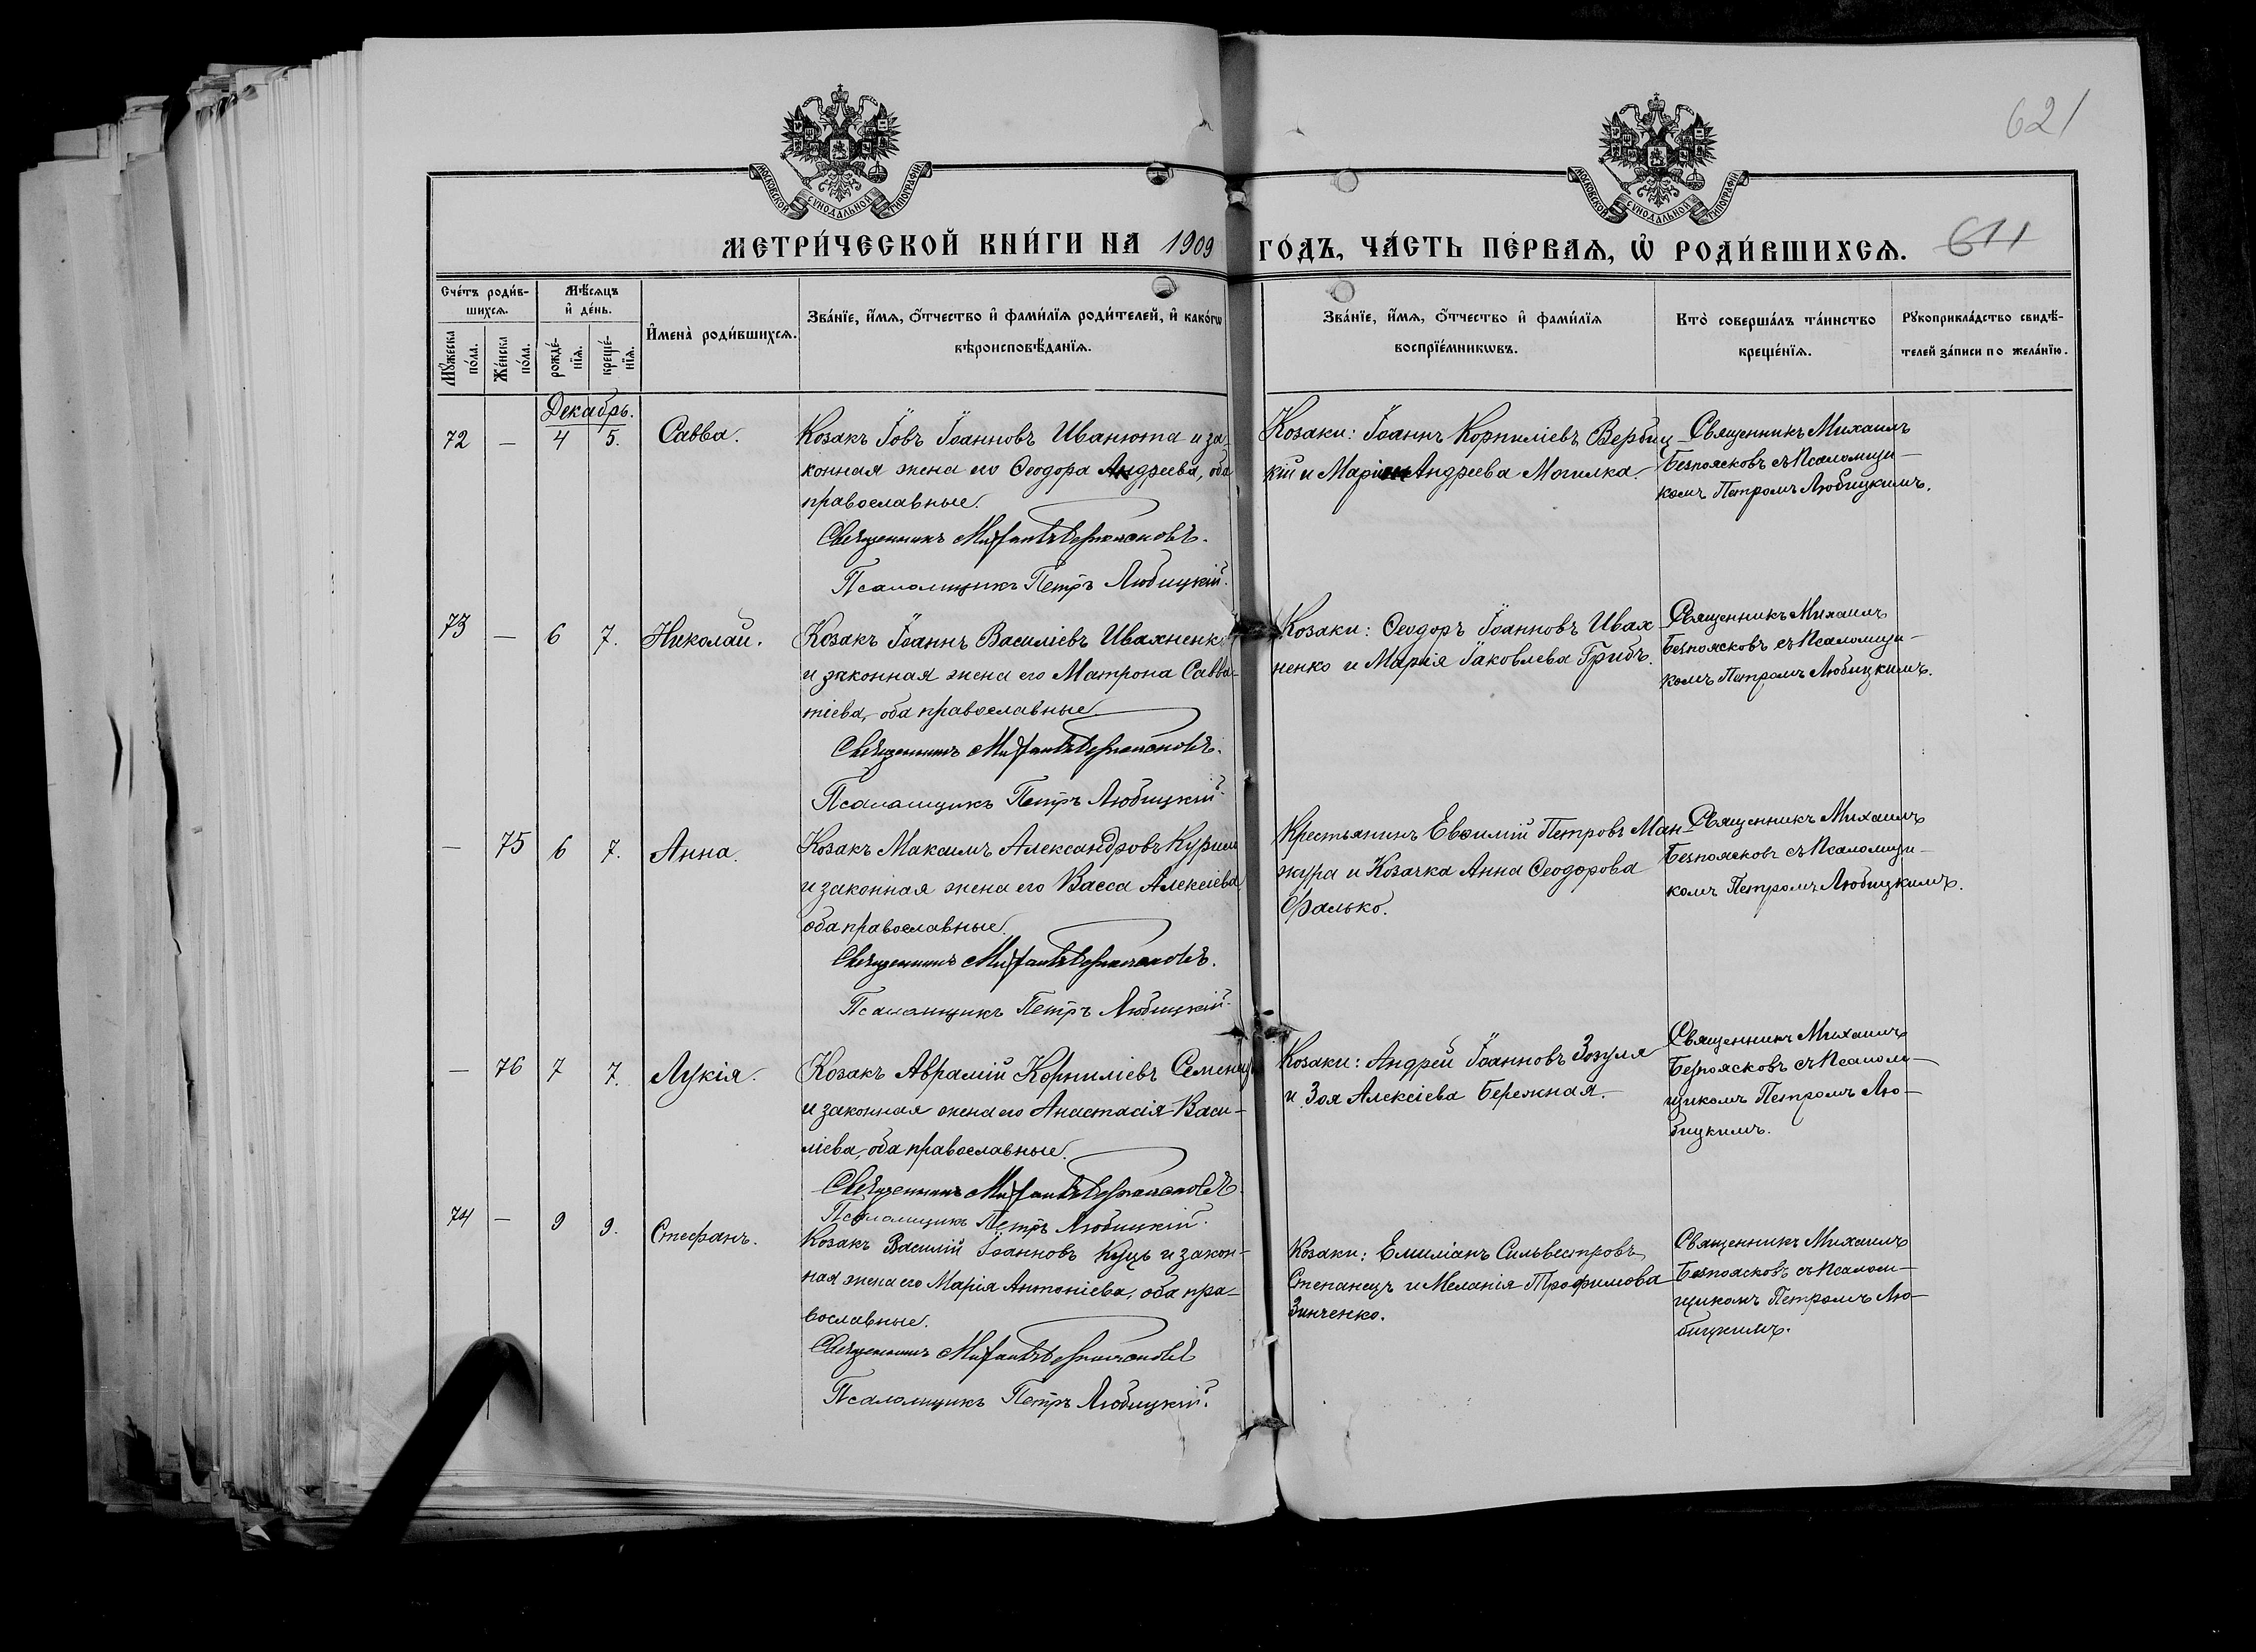 621
МОСКОВСКОЙ СѴНОДАЛЬНОЙ ТИПОГРАФІИ
МОСКОВСКОЙ СѴНОДАЛЬНОЙ ТИПОГРАФІИ
МЕТРИ́ЧЕСКОЙ КНИ́ГИ НА 1909 ГО́ДЪ, ЧА́СТЬ ПЕ́РВАЯ, Ѡ҆ РОДИ́ВШИХСѦ. 611
Сче́тъ роди́в-
шихсѧ.
Мꙋжеска по́ла.
Же́нска по́ла.
Мѣ́сѧцъ
и҆ де́нь.
рожде́-
нїѧ.
креще́-
нїѧ.
И҆мена̀ роди́вшихсѧ.
Зва́нїе, и҆́мѧ, ѻ҆́тчество и҆ фами́лїѧ роди́телей, и҆ како́гѡ
вѣроисповѣ́данїѧ.
Зва́нїе, и҆́мѧ, ѻ҆́тчество и҆ фами́лїѧ
воспрїе́мникѡвъ.
Кто̀ соверша́лъ та́инство
креще́нїѧ.
Рꙋкоприкла́дство свидѣ́-
телей за́писи по жела́нїю.
Декабрь.
72 — 4 5. Савва.
Козакъ Іовъ Іоанновъ Иванюта и за-
конная жена его Ѳеодора Андреева, оба
православные.
Священникъ Михаилъ Безпоясковъ.
Псаломщикъ Петръ Любицкій.
Козаки: Іоаннъ Корниліевъ Вербиц-
кій и Марія Андреева Могилка.
Священникъ Михаилъ
Безпоясковъ съ Псаломщи-
комъ Петромъ Любицкимъ.
73 — 6 7. Николай.
Козакъ Іоаннъ Василіевъ Ивахненко
и законная жена его Матрона Савва-
тіева, оба православные.
Священникъ Михаилъ Безпоясковъ.
Псаломщикъ Петръ Любицкій.
Козаки: Ѳеодоръ Іоанновъ Ивах-
ненко и Марія Іаковлева Грибъ.
Священникъ Михаилъ
Безпоясковъ съ Псаломщи-
комъ Петромъ Любицкимъ.
— 75 6 7. Анна.
Козакъ Максимъ Александровъ
и законная жена его Васса Алексіева
оба православные.
Священникъ Михаилъ Безпоясковъ.
Псаломщикъ Петръ Любицкій.
Крестьянинъ Евѳимій Петровъ Ман-
жура и Козачка Анна Ѳеодорова
Фалько.
Священникъ Михаилъ
Безпоясковъ съ Псаломщи-
комъ Петромъ Любицкимъ.
— 76 7 7. Лукія.
Козакъ Аврамій Корниліевъ
и законная жена его Анастасія Васи-
ліева, оба православные.
Священникъ Михаилъ Безпоясковъ.
Псаломщикъ Петръ Любицкій.
Козаки: Андрей Іоанновъ Зозуля
и Зоя Алексіева Бережная.
Священникъ Михаилъ
Безпоясковъ съ Псалом-
щикомъ Петромъ Лю-
бицкимъ.
74 — 9 9. Стефанъ.
Козакъ Василій Іоанновъ Куць и закон-
ная жена его Марія Антоніева, оба пра-
вославные.
Священникъ Михаилъ Безпоясковъ
Псаломщикъ Петръ Любицкій.
Козаки: Емиліанъ Сильвестровъ
Степанецъ и Меланія Трофимова
Зинченко.
Священникъ Михаилъ
Безпоясковъ съ Псалом-
щикомъ Петромъ Лю-
бицкимъ.